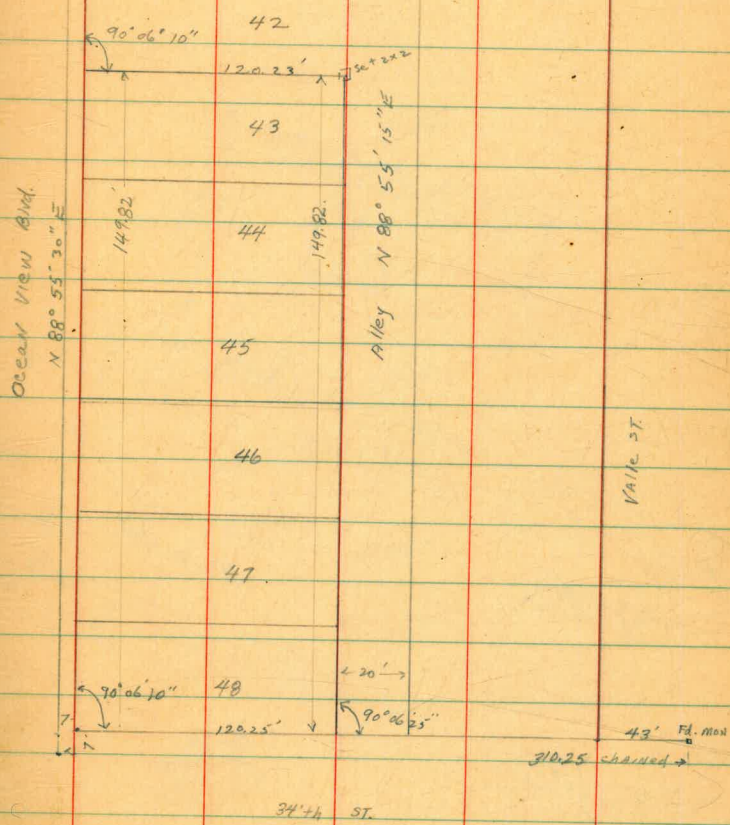 42
90° 06' 10"
120.23'
Set 2x2
43
Ocean View Blvd.
N 88° 55' 30" E
149.82'
44
149.82.
Alley N 88° 55' 15" E
45
46
Valle ST.
47
20'
90° 06' 10"
48
90° 06' 25"
7'
120.25'
43' Fd. Mon
7'
310.25 chained
34'th ST.